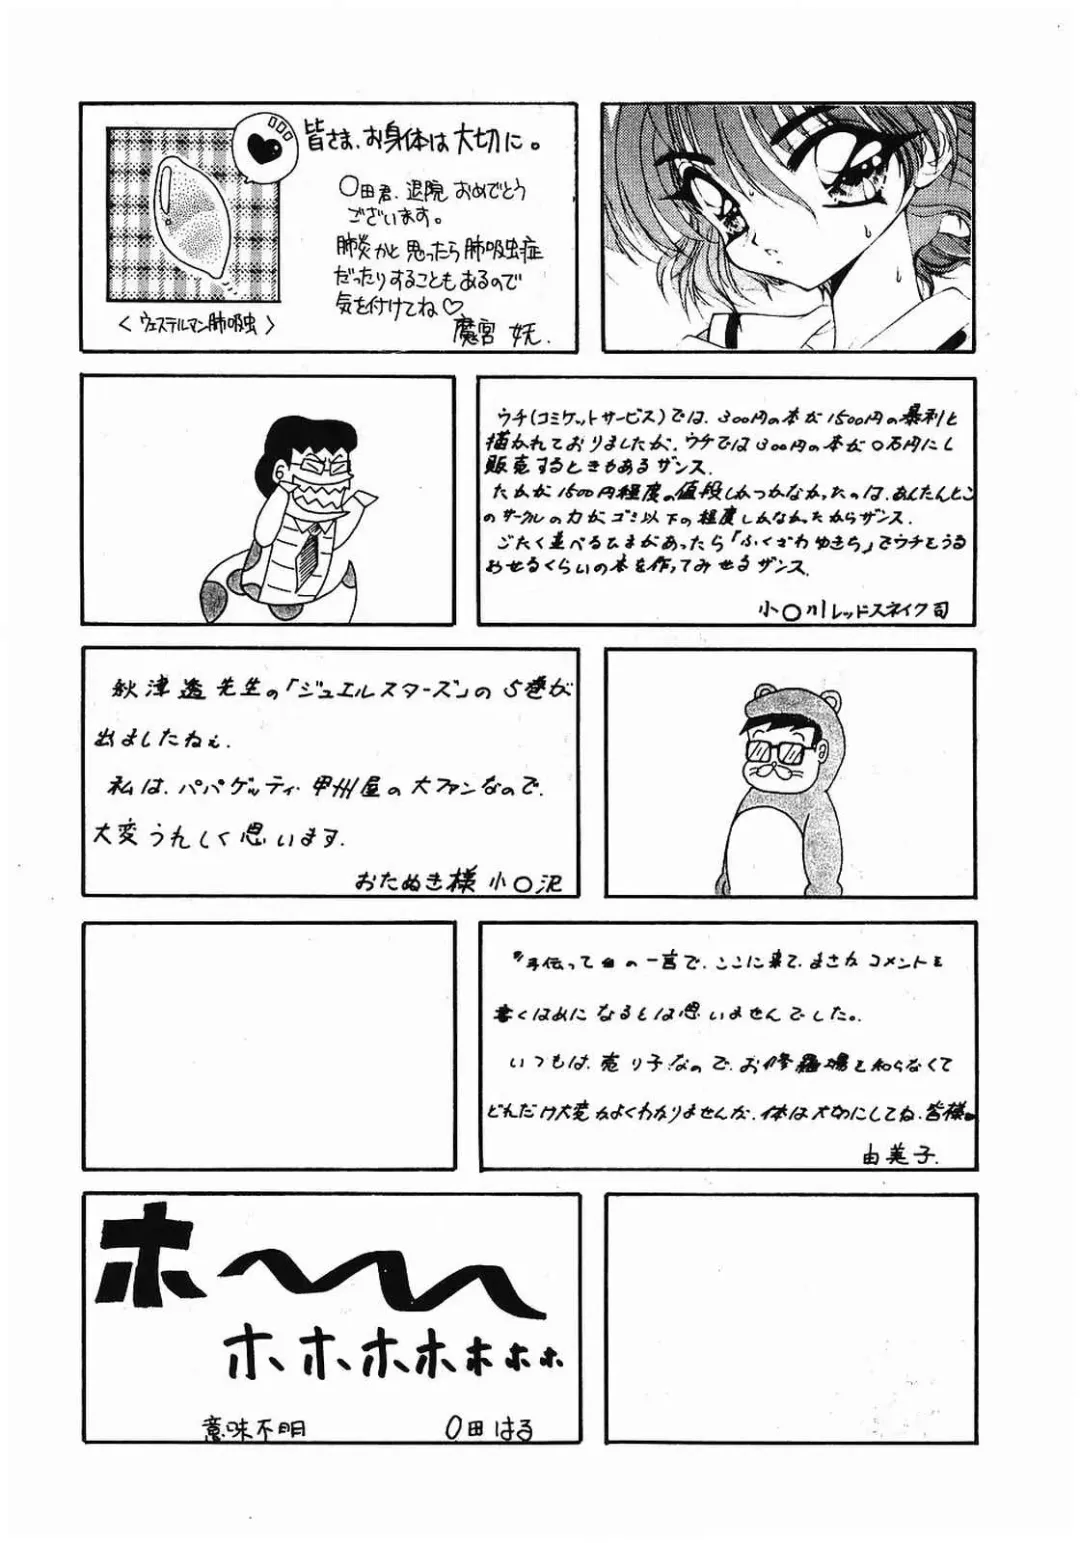 皆さま、お身体は大切に。
〇田君、退院おめでとう
ございます。
肺炎かと思ったら肺吸虫症
だったりすることもあるので
気を付けてね♡
魔宮 妖.
〈ウェステルマン肺吸虫〉
ウチ(コミケットサービス)では、300円の本が1500円の暴利と
描かれておりましたが、ウチでは300円の本が〇万円にし
販売するときもあるザンス.
たかが1500円程度の値段しかつかなかったのは、あんたんとこ
のサークルの力がゴミ以下の程度しかなかったからザンス.
ごたく並べるひまがあったら「ふくざわゆきち」でウチをうる
おせるくらいの本を作ってみせるザンス.
小〇川レッドスネイク司
秋津透先生の「ジュエルスターズ」の5巻が
出ましたねぇ.
私は、パパゲッティ・甲州屋の大ファンなので、
大変うれしく思います.
おたぬき様 小〇沢
〃手伝って〃の一言で、ここに来て、まさかコメントを
書くはめになるとは思いませんでした。
いつもは、売り子なので、お修羅場を知らなくて
どれだけ大変かよくわかりませんが、体は大切にしてね、皆様。
由美子.
ホ〜〜
ホホホホホホホ
意味不明 〇田はる